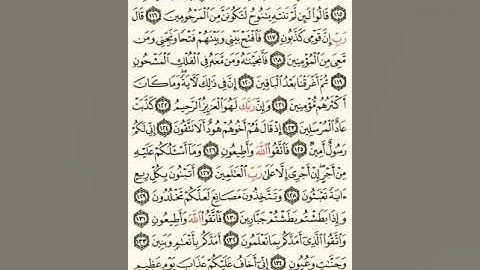 ﴿١١٥﴾ قَالُوا۟ لَئِن لَّمْ تَنتَهِ يَـٰنُوحُ لَتَكُونَنَّ مِنَ ٱلْمَرْجُومِينَ ﴿١١٦﴾ قَالَ
رَبِّ إِنَّ قَوْمِى كَذَّبُونِ ﴿١١٧﴾ فَٱفْتَحْ بَيْنِى وَبَيْنَهُمْ فَتْحًا وَنَجِّنِى وَمَن
مَّعِىَ مِنَ ٱلْمُؤْمِنِينَ ﴿١١٨﴾ فَأَنجَيْنَـٰهُ وَمَن مَّعَهُۥ فِى ٱلْفُلْكِ ٱلْمَشْحُونِ
﴿١١٩﴾ ثُمَّ أَغْرَقْنَا بَعْدُ ٱلْبَاقِينَ ﴿١٢٠﴾ إِنَّ فِى ذَٰلِكَ لَـَٔايَةً وَمَا كَانَ
أَكْثَرُهُم مُّؤْمِنِينَ ﴿١٢١﴾ وَإِنَّ رَبَّكَ لَهُوَ ٱلْعَزِيزُ ٱلرَّحِيمُ ﴿١٢٢﴾ كَذَّبَتْ
عَادٌ ٱلْمُرْسَلِينَ ﴿١٢٣﴾ إِذْ قَالَ لَهُمْ أَخُوهُمْ هُودٌ أَلَا تَتَّقُونَ ﴿١٢٤﴾ إِنِّى لَكُمْ
رَسُولٌ أَمِينٌ ﴿١٢٥﴾ فَٱتَّقُوا۟ ٱللَّهَ وَأَطِيعُونِ ﴿١٢٦﴾ وَمَآ أَسْـَٔلُكُمْ عَلَيْهِ
مِنْ أَجْرٍ إِنْ أَجْرِىَ إِلَّا عَلَىٰ رَبِّ ٱلْعَـٰلَمِينَ ﴿١٢٧﴾ أَتَبْنُونَ بِكُلِّ رِيعٍ
ءَايَةً تَعْبَثُونَ ﴿١٢٨﴾ وَتَتَّخِذُونَ مَصَانِعَ لَعَلَّكُمْ تَخْلُدُونَ ﴿١٢٩﴾
وَإِذَا بَطَشْتُم بَطَشْتُمْ جَبَّارِينَ ﴿١٣٠﴾ فَٱتَّقُوا۟ ٱللَّهَ وَأَطِيعُونِ ﴿١٣١﴾
وَٱتَّقُوا۟ ٱلَّذِىٓ أَمَدَّكُم بِمَا تَعْلَمُونَ ﴿١٣٢﴾ أَمَدَّكُم بِأَنْعَـٰمٍ وَبَنِينَ ﴿١٣٣﴾
وَجَنَّـٰتٍ وَعُيُونٍ ﴿١٣٤﴾ إِنِّىٓ أَخَافُ عَلَيْكُمْ عَذَابَ يَوْمٍ عَظِيمٍ